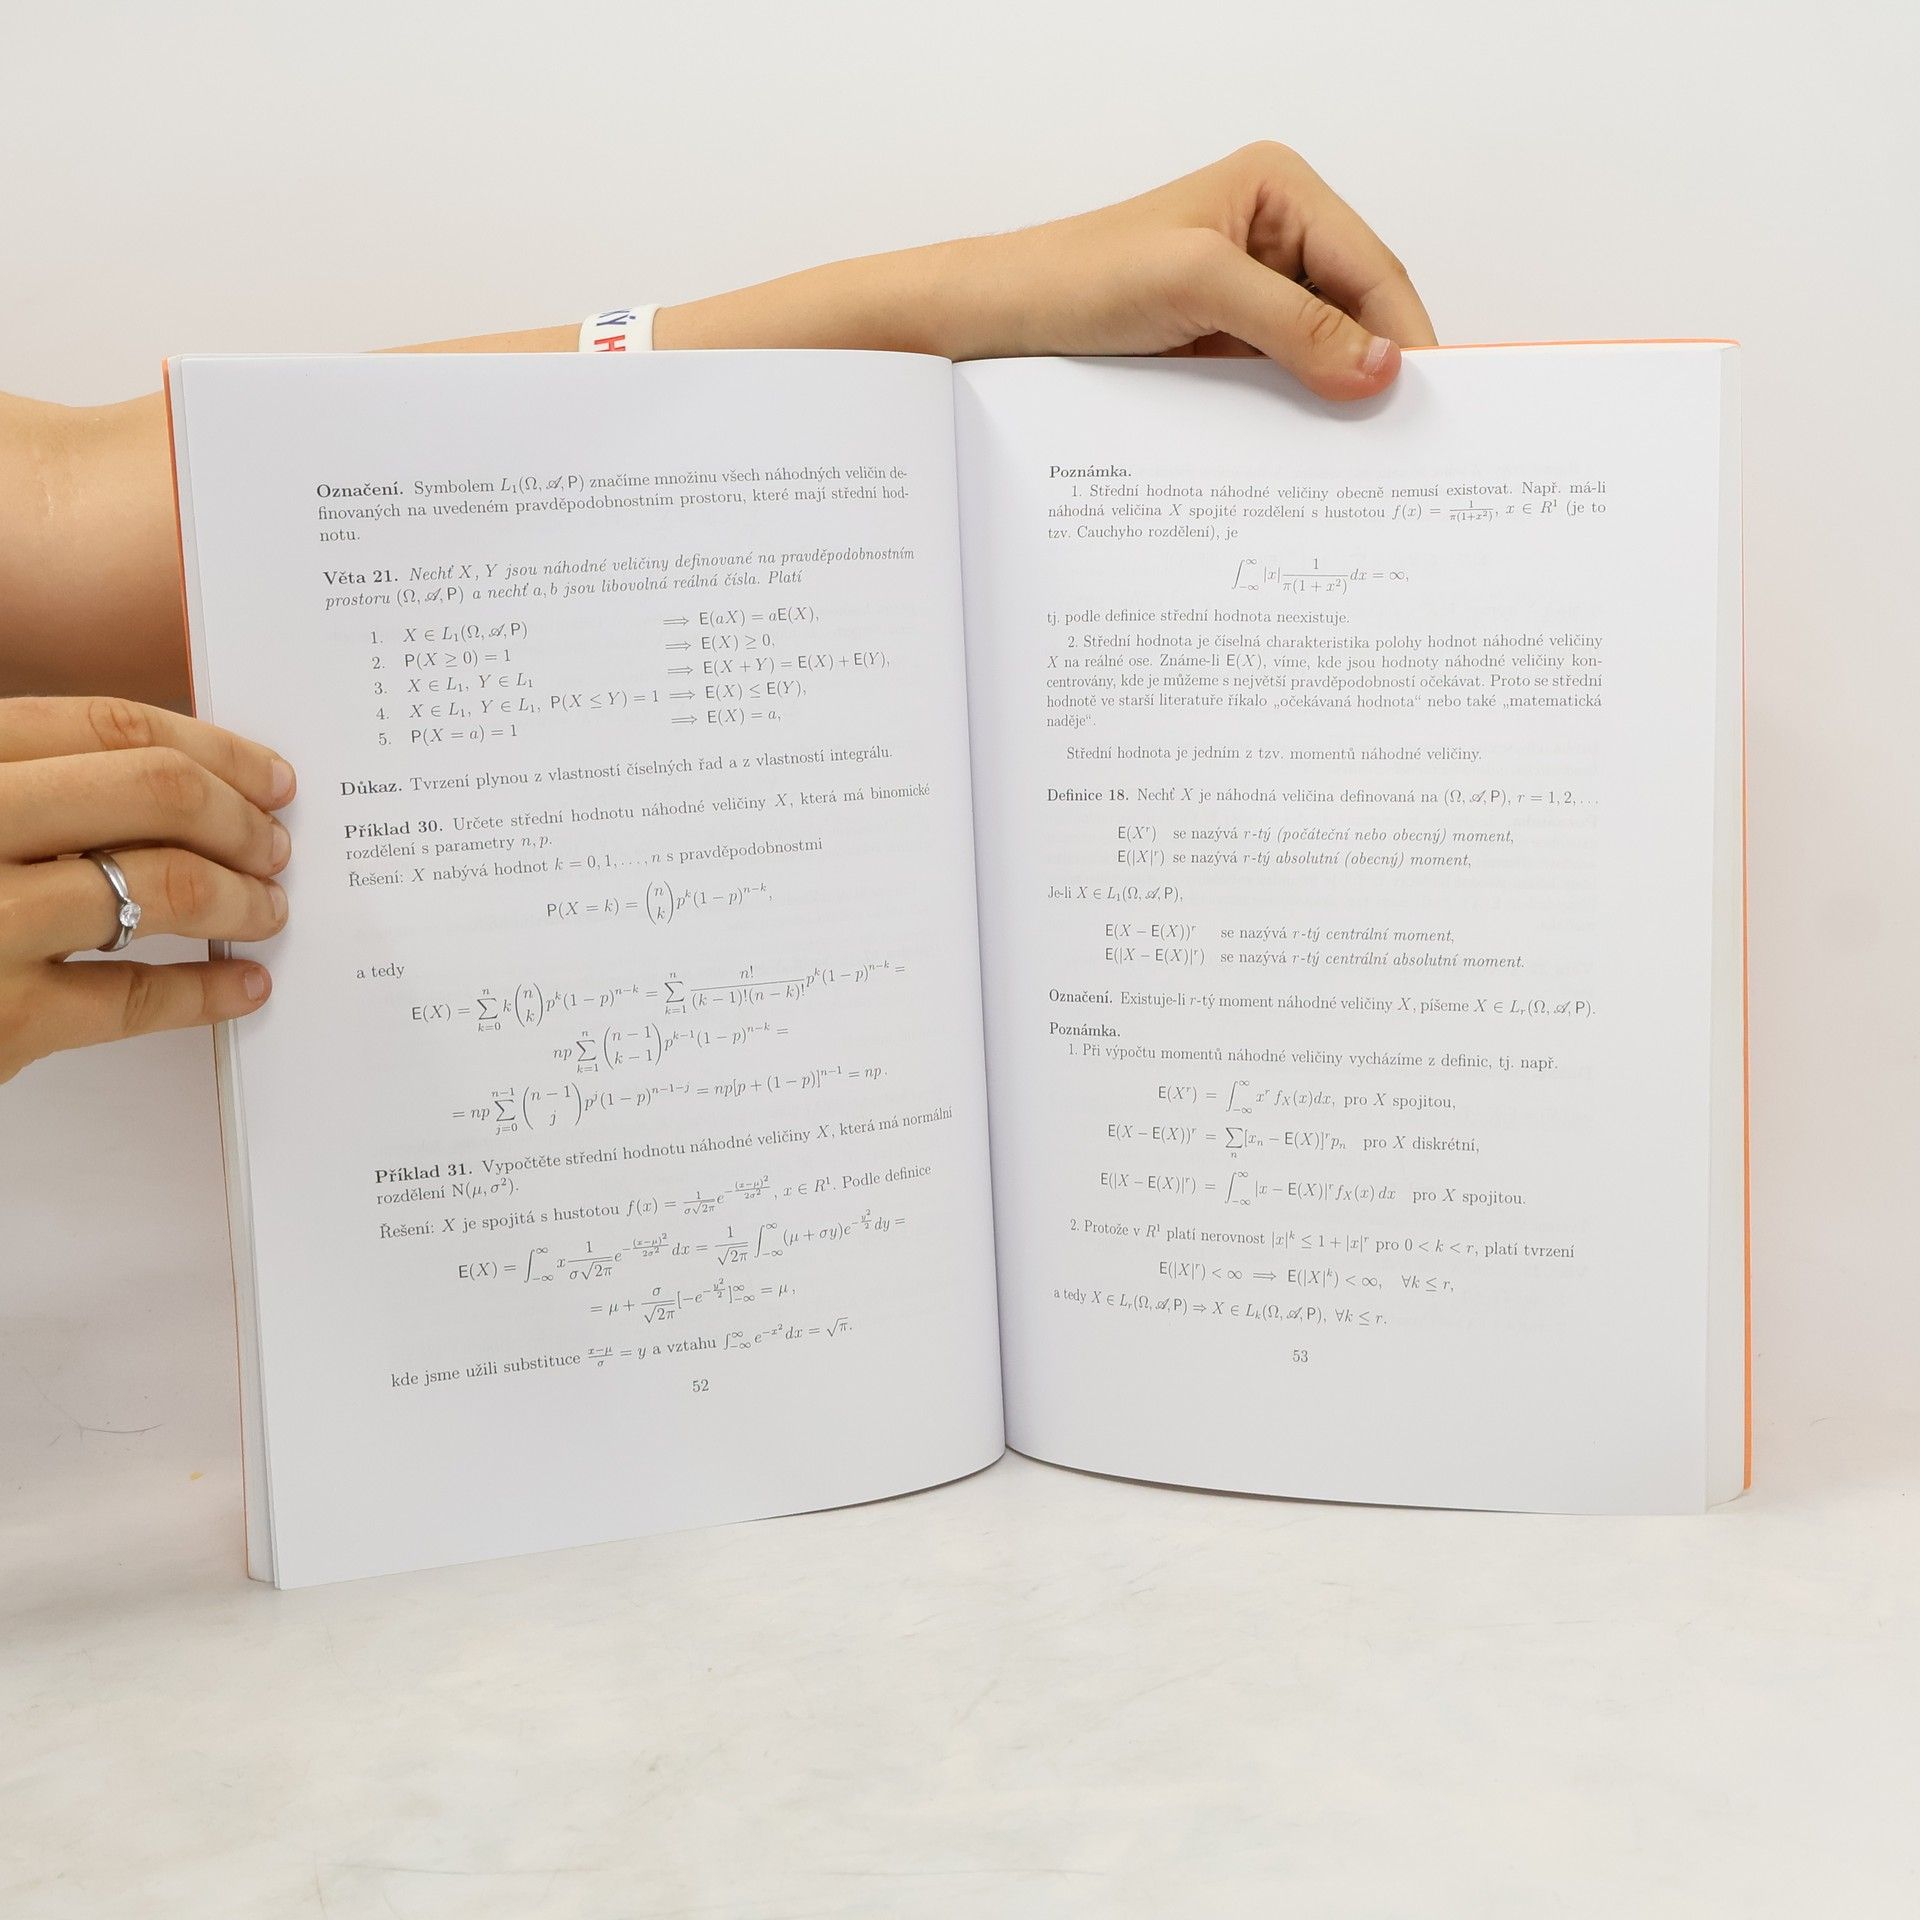 KÝ H
Označení. Symbolem L₁(Ω, 𝒜, P) značíme množinu všech náhodných veličin de-
finovaných na uvedeném pravděpodobnostním prostoru, které mají střední hod-
notu.
Věta 21. Nechť X, Y jsou náhodné veličiny definované na pravděpodobnostním
prostoru (Ω, 𝒜, P) a nechť a, b jsou libovolná reálná čísla. Platí
1. X ∈ L₁(Ω, 𝒜, P) ⟹ E(aX) = aE(X),
2. P(X ≥ 0) = 1 ⟹ E(X) ≥ 0,
3. X ∈ L₁, Y ∈ L₁ ⟹ E(X + Y) = E(X) + E(Y),
4. X ∈ L₁, Y ∈ L₁, P(X ≤ Y) = 1 ⟹ E(X) ≤ E(Y),
5. P(X = a) = 1 ⟹ E(X) = a,
Důkaz. Tvrzení plynou z vlastností číselných řad a z vlastností integrálu.
Příklad 30. Určete střední hodnotu náhodné veličiny X, která má binomické
rozdělení s parametry n, p.
Řešení: X nabývá hodnot k = 0, 1, . . . , n s pravděpodobnostmi
P(X = k) = \binom{n}{k} p^k (1 − p)^{n−k},
a tedy
E(X) = \sum_{k=0}^{n} k \binom{n}{k} p^k (1 − p)^{n−k} = \sum_{k=1}^{n} \frac{n!}{(k − 1)!(n − k)!} p^k (1 − p)^{n−k} =
np \sum_{k=1}^{n} \binom{n − 1}{k − 1} p^{k−1} (1 − p)^{n−k} =
= np \sum_{j=0}^{n−1} \binom{n − 1}{j} p^j (1 − p)^{n−1−j} = np[p + (1 − p)]^{n−1} = np.
Příklad 31. Vypočtěte střední hodnotu náhodné veličiny X, která má normální
rozdělení N(μ, σ²).
Řešení: X je spojitá s hustotou f(x) = \frac{1}{σ\sqrt{2π}} e^{−\frac{(x−μ)^2}{2σ^2}}, x ∈ R¹. Podle definice
E(X) = \int_{−∞}^{∞} x \frac{1}{σ\sqrt{2π}} e^{−\frac{(x−μ)^2}{2σ^2}} dx = \frac{1}{\sqrt{2π}} \int_{−∞}^{∞} (μ + σy) e^{−\frac{y^2}{2}} dy =
= μ + \frac{σ}{\sqrt{2π}} [−e^{−\frac{y^2}{2}}]_{−∞}^{∞} = μ,
kde jsme užili substituce \frac{x−μ}{σ} = y a vztahu \int_{−∞}^{∞} e^{−x^2} dx = \sqrt{π}.
52
Poznámka.
1. Střední hodnota náhodné veličiny obecně nemusí existovat. Např. má-li
náhodná veličina X spojité rozdělení s hustotou f(x) = \frac{1}{π(1+x^2)}, x ∈ R¹ (je to
tzv. Cauchyho rozdělení), je
\int_{−∞}^{∞} |x| \frac{1}{π(1 + x^2)} dx = ∞,
tj. podle definice střední hodnota neexistuje.
2. Střední hodnota je číselná charakteristika polohy hodnot náhodné veličiny
X na reálné ose. Známe-li E(X), víme, kde jsou hodnoty náhodné veličiny kon-
centrovány, kde je můžeme s největší pravděpodobností očekávat. Proto se střední
hodnotě ve starší literatuře říkalo „očekávaná hodnota“ nebo také „matematická
naděje“.
Střední hodnota je jedním z tzv. momentů náhodné veličiny.
Definice 18. Nechť X je náhodná veličina definovaná na (Ω, 𝒜, P), r = 1, 2, . . .
E(X^r) se nazývá r-tý (počáteční nebo obecný) moment,
E(|X|^r) se nazývá r-tý absolutní (obecný) moment,
Je-li X ∈ L₁(Ω, 𝒜, P),
E(X − E(X))^r se nazývá r-tý centrální moment,
E(|X − E(X)|^r) se nazývá r-tý centrální absolutní moment.
Označení. Existuje-li r-tý moment náhodné veličiny X, píšeme X ∈ L_r(Ω, 𝒜, P).
Poznámka.
1. Při výpočtu momentů náhodné veličiny vycházíme z definic, tj. např.
E(X^r) = \int_{−∞}^{∞} x^r f_X(x)dx, pro X spojitou,
E(X − E(X))^r = \sum_n [x_n − E(X)]^r p_n pro X diskrétní,
E(|X − E(X)|^r) = \int_{−∞}^{∞} |x − E(X)|^r f_X(x) dx pro X spojitou.
2. Protože v R¹ platí nerovnost |x|^k ≤ 1 + |x|^r pro 0 < k < r, platí tvrzení
E(|X|^r) < ∞ ⟹ E(|X|^k) < ∞, ∀k ≤ r,
a tedy X ∈ L_r(Ω, 𝒜, P) ⇒ X ∈ L_k(Ω, 𝒜, P), ∀k ≤ r.
53